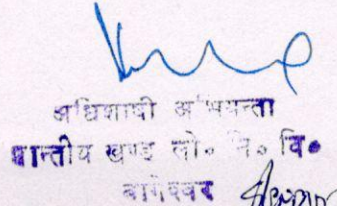 अधिशाषी अभियन्ता
प्रान्तीय खण्ड लो० नि० वि०
बागेश्वर